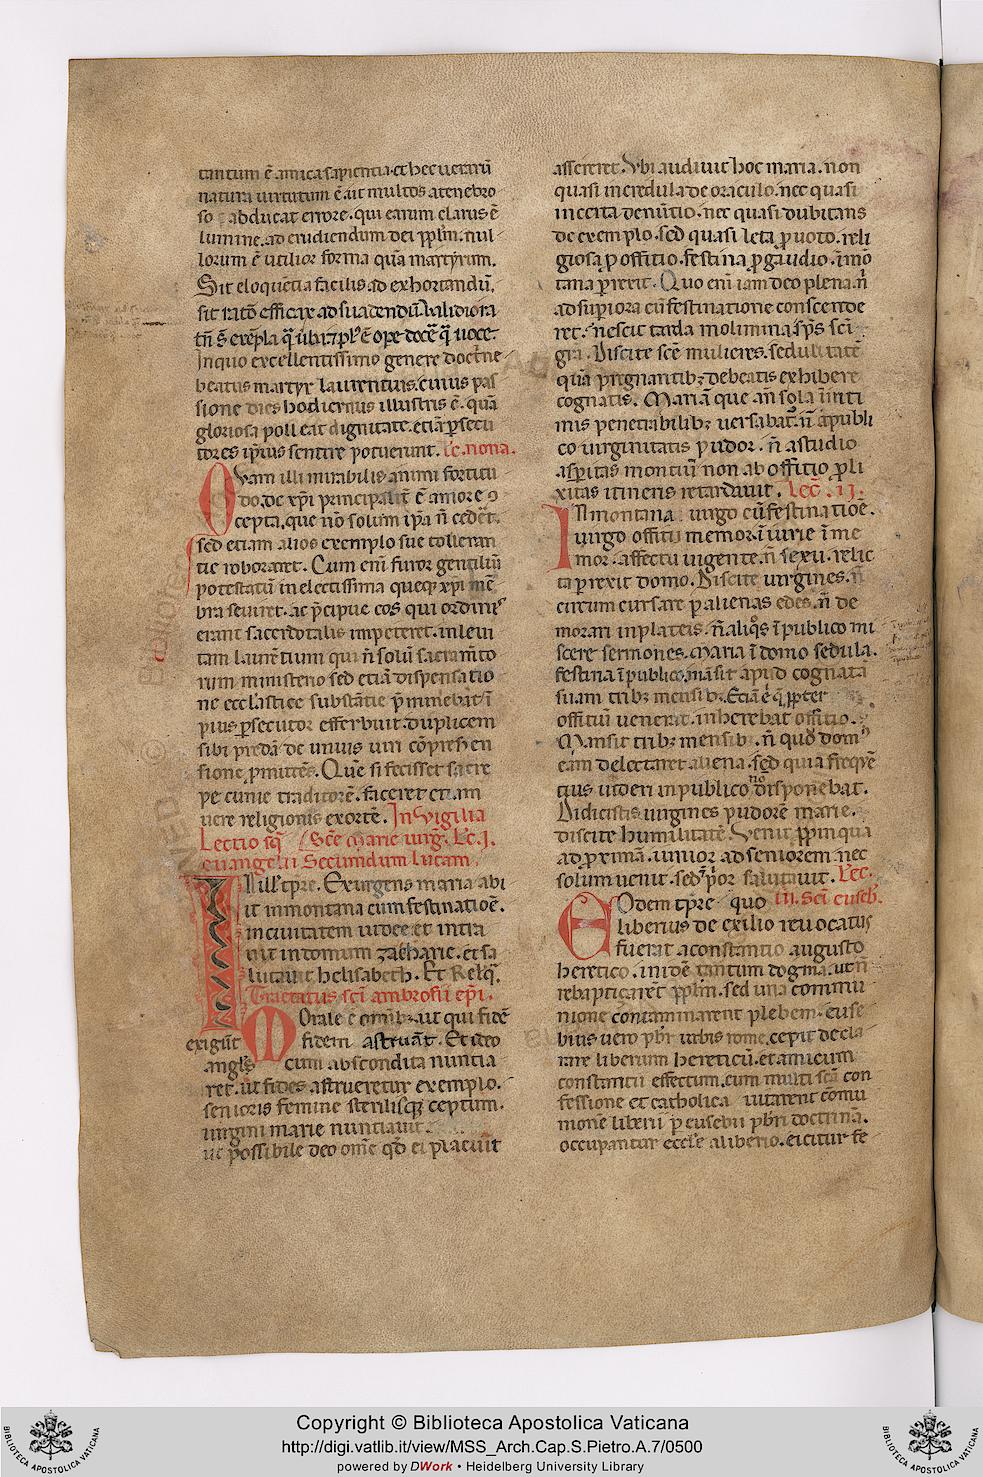 tantum ē amica sapientia. et hec uerarū
natura uirtutum ē. ut multos a tenebro
so abducat errore. qui earum clarus ē
lumine. ad erudiendum dei ppl̄m. nul
lorum ē utilior forma quā martyrum.
Sit eloquētia facilis ad exhortandū,
sit ratō efficax ad suadendū. Validiora
tn̄ s̄t exēpla qm̄ uba. et plꝰ ē ope docē qm̄ uoce.
In quo excellentissimo genere doctrine
beatus martyr laurentius. cuius pas
sione dies hodiernus illustris ē. quā
gloriosa polleat dignitate. etiā ꝑsecu
tores ip̄ius sentire potuerunt. lc̄. nona.
Qvam illi mirabilis animi fortitu
do. de xp̄i principalit̄ ē amore ꝯ
cepta. que nō solum ip̄a n̄ cedēt.
sed etiam alios exemplo sue tolleran
tie roboraret. Cum enī furor gentiliū
potestatū in electissima queqȝ xp̄i mē
bra seuiret. ac p̄cipue eos qui ordinis
erant sacerdotalis impeteret. in leui
tam laurētium qui n̄ solū sacram̄to
rum ministerio sed etiā dispensatio
ne eccl̄astice substātie p̄minebat ī
pius ꝑsecutor efferbuit. duplicem
sibi predā de unius uiri cōprehen
sione ꝓmittēs. Quē si fecisset sacre
pecunie traditorē. faceret etiam
uere religionis exortē. In Vigilia
Lectio sq̄ Scē Marie uirḡ. Lc̄. I.
euangelii Secundum Lucam
INill' tp̄re. Exurgens maria abi
it in montana cum festinatioē.
in ciuitatem iudee. et intra
uit in domum zacharie. et sa
lutauit helisabeth. Et Relq̄.
Tractatus scī ambrosii ep̄i.
MOrale ē omībȝ. ut qui fidē
exigūt fidem astruāt. Et ideo
angl̄s cum abscondita nuntia
ret. ut fides astrueretur exemplo.
senioris femine sterilisqȝ ceptum.
uirgini marie nuntiauit.
ut possibile deo omē qd̄ ei placuīt
assereret. Vbi audiuit hoc maria. non
quasi incredula de oraculo. nec quasi
incerta de nūtio. nec quasi dubitans
de exemplo. sed quasi leta ꝓ uoto. reli
giosa ꝓ offitio. festina ꝓ gaudio. ī mō
tana ꝑrexit. Quo enī iam deo plena. n̄
ad supiora cū festinatione conscende
ret. nescit tarda molimina sp̄s scī
grā. Discite scē mulieres. sedulitatē
quā pregnantibȝ debeatis exhibere
cognatis. Mariā que an̄ sola ī inti
mis penetrabilibȝ uersabat. n̄ a publi
co uirginitatis pudor. n̄ a studio
asꝑitas montiū non ab offitio ꝓli
xitas itineris retardauit. Lec̄. II.
IN montana uirgo cū festinatioē.
uirgo offitii memor. ī iurie ī me
mor. affectu uigente. n̄ sexu. relic
ta ꝑrexit domo. Discite uirgines. n̄
circum cursare ꝑ alienas edes. n̄ de
morari in plateis. n̄ aliqͦs ī publico mi
scere sermones. Maria ī domo sedula.
festina ī publico, māsit apud cognatā
suam tribȝ mensibȝ. Etiā
offitiū uenerat. inherebat offitio.
Mansit tribȝ mensibȝ. n̄ quod domꝰ
eam delectaret aliena. sed quia freqūē
tius uideri in publico nō disponebat.
Didicistis uirgines pudorē marie.
discite humilitatē. Venit ꝓpinqua
ad ꝓximā. iunior ad seniorem. nec
solum uenit. sed prior salutauit. Lec̄.
EOdem tp̄re quo III. Scī euseb̄.
liberius de exilio reuocatus
fuerat a constantio augusto
heretico. in idē tantum dogma. ut n̄
rebapticarēt ppl̄m. sed una commu
nione contaminarent plebem. euse
bius uero pb̄r urbis rome. cepit decla
rare liberum hereticū. et amicum
constantii effectum. cum multi scā con
fessione et catholica uitarent cōmu
nionē liberii ꝑ eusebii pb̄ri doctrinā.
occupantur eccl̄e a liberio. eicitur fe
Copyright © Biblioteca Apostolica Vaticana
http://digi.vatlib.it/view/MSS_Arch.Cap.S.Pietro.A.7/0500
powered by DWork • Heidelberg University Library
BIBLIOTECA APOSTOLICA VATICANA
BIBLIOTECA APOSTOLICA VATICANA